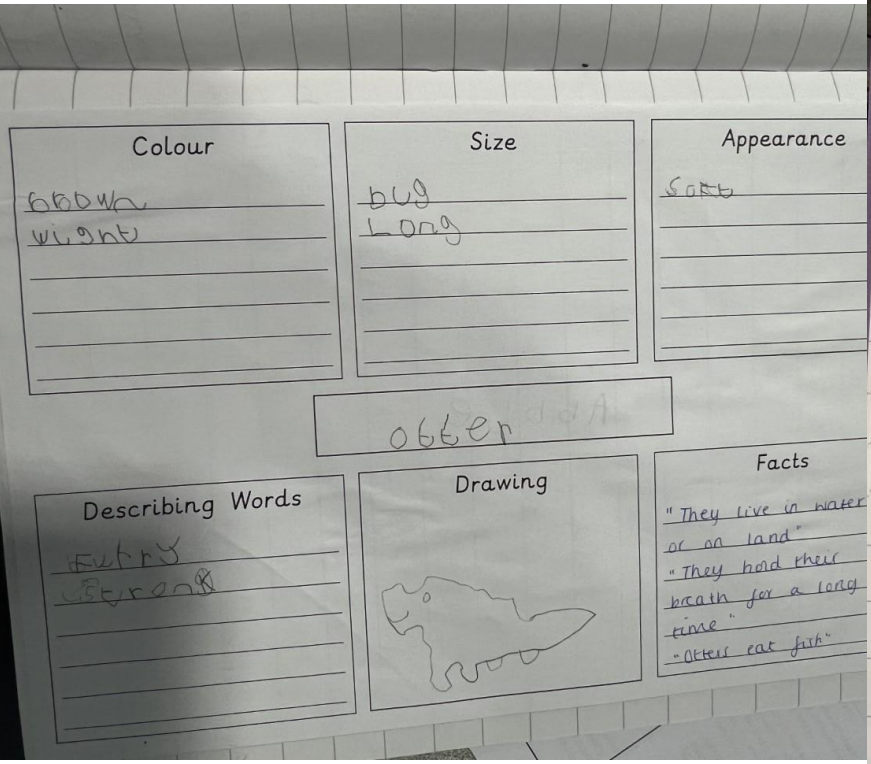 Colour
bbown
wight
Size
bug
Long
Appearance
Soft
otter
Describing Words
Furry
strong
Drawing
Facts
"They live in water
or on land"
"They hold their
breath for a long
time"
"Otters eat fish"